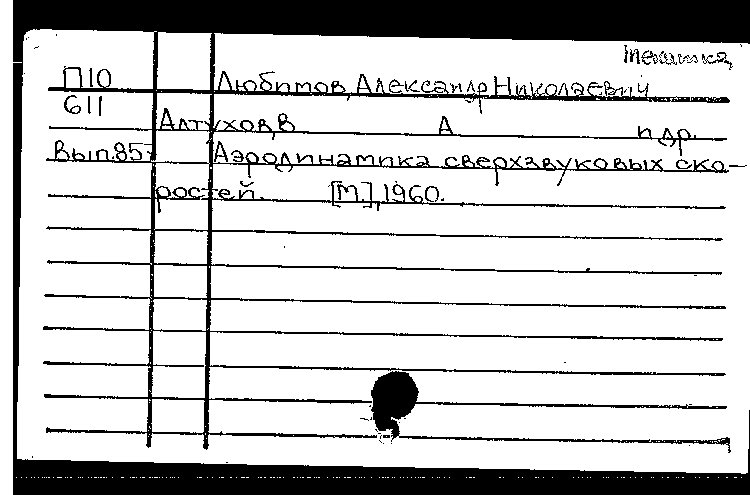 П10 Любимов, Александр Николаевич
611
Алтухов, В А и др.
Вып.85- Аэродинамика сверхзвуковых ско-
ростей. [М.], 1960.